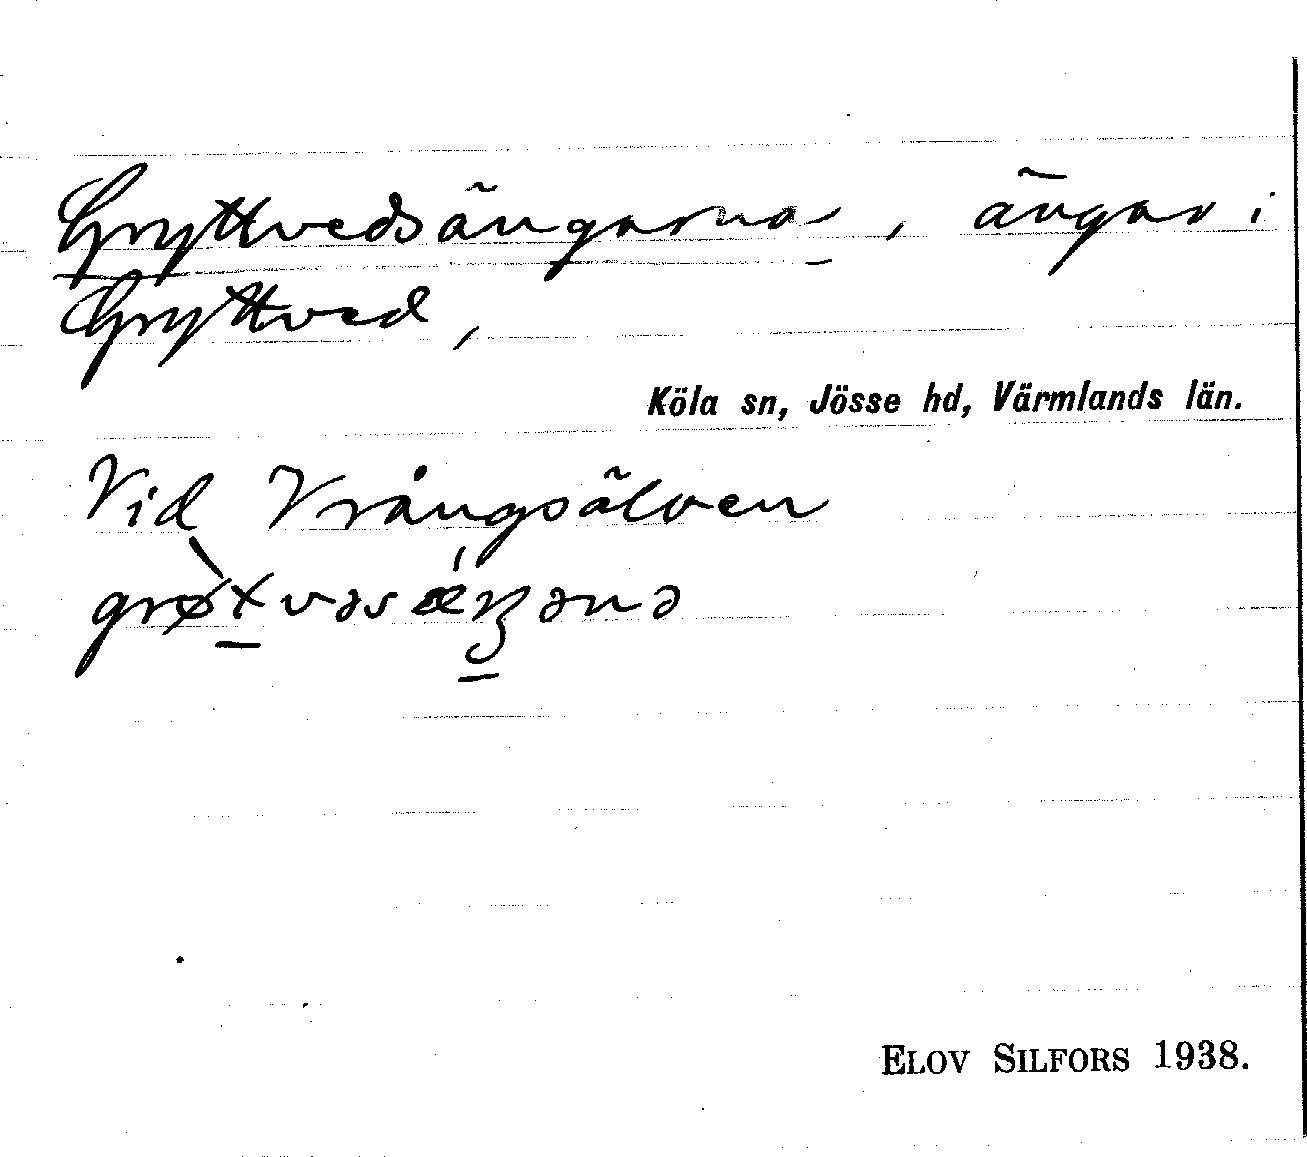 Gryttvedsängarna, ängar i
Gryttved,
Köla sn, Jösse hd, Värmlands län.
Vid Vrångsälven
ELOV SILFORS 1938.